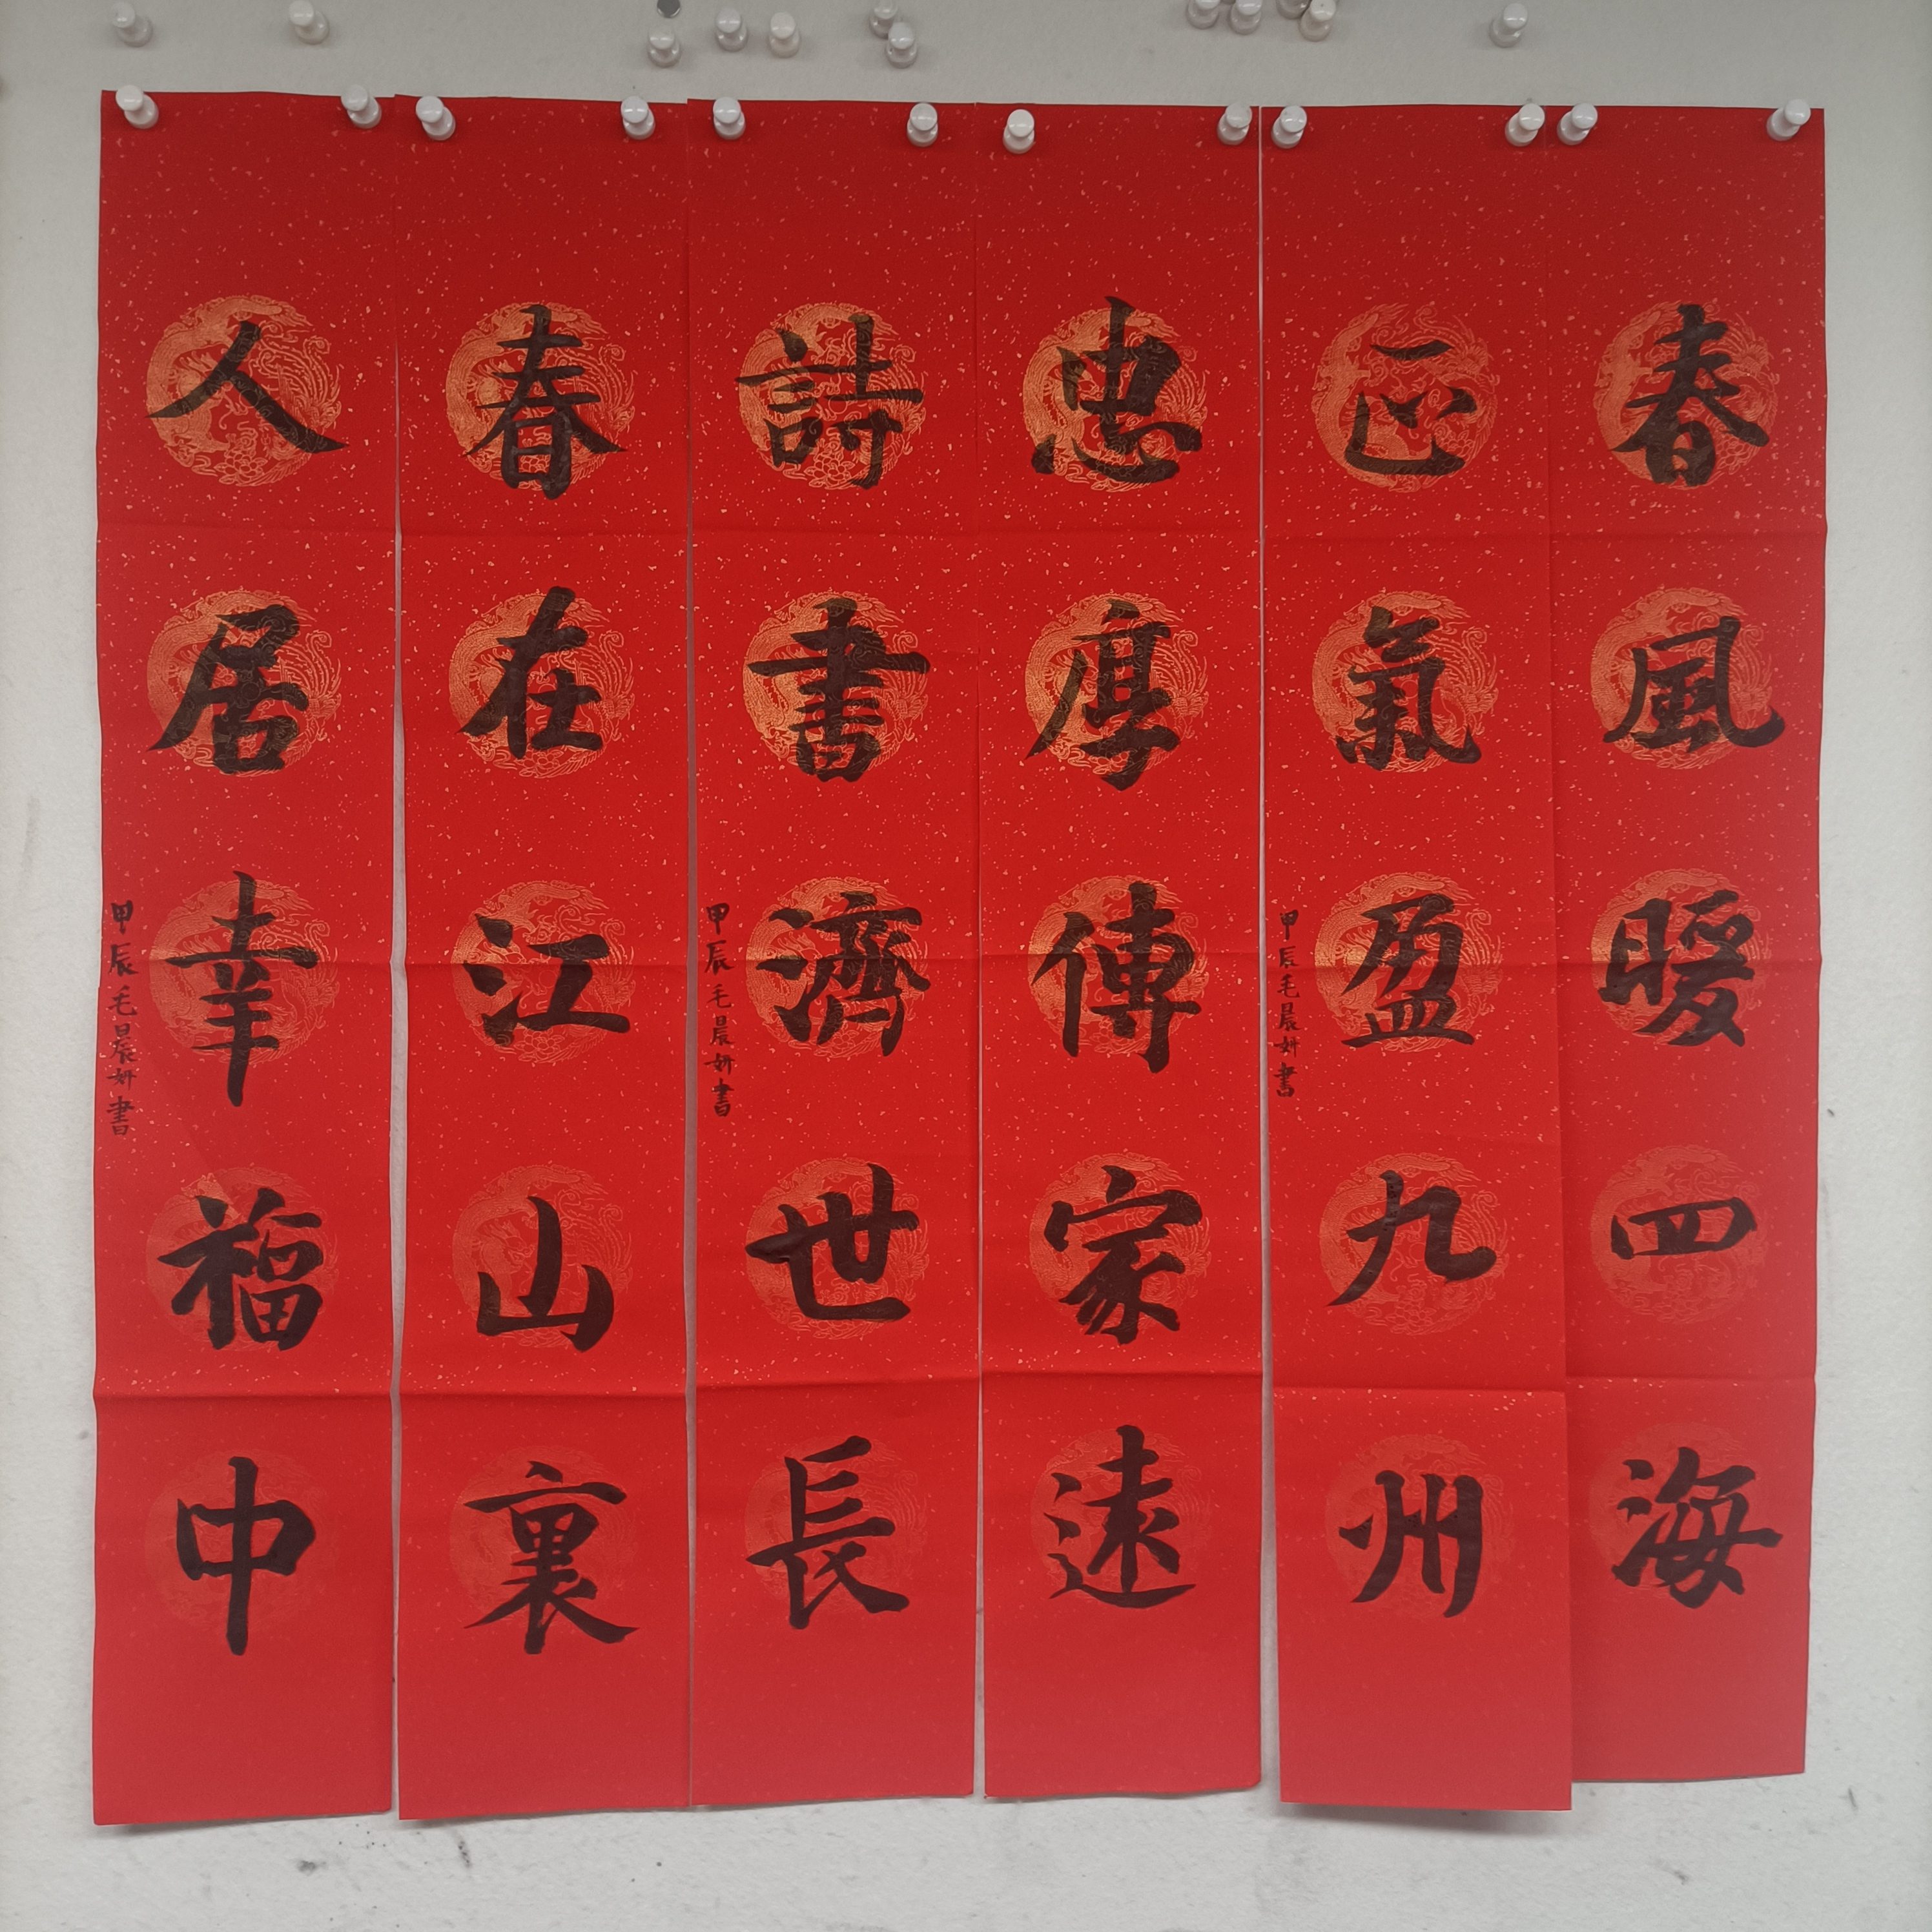 春風暖四海
正氣盈九州
甲辰毛晨妍書
忠厚傳家遠
詩書濟世長
甲辰毛晨妍書
春在江山裏
人居幸福中
甲辰毛晨妍書